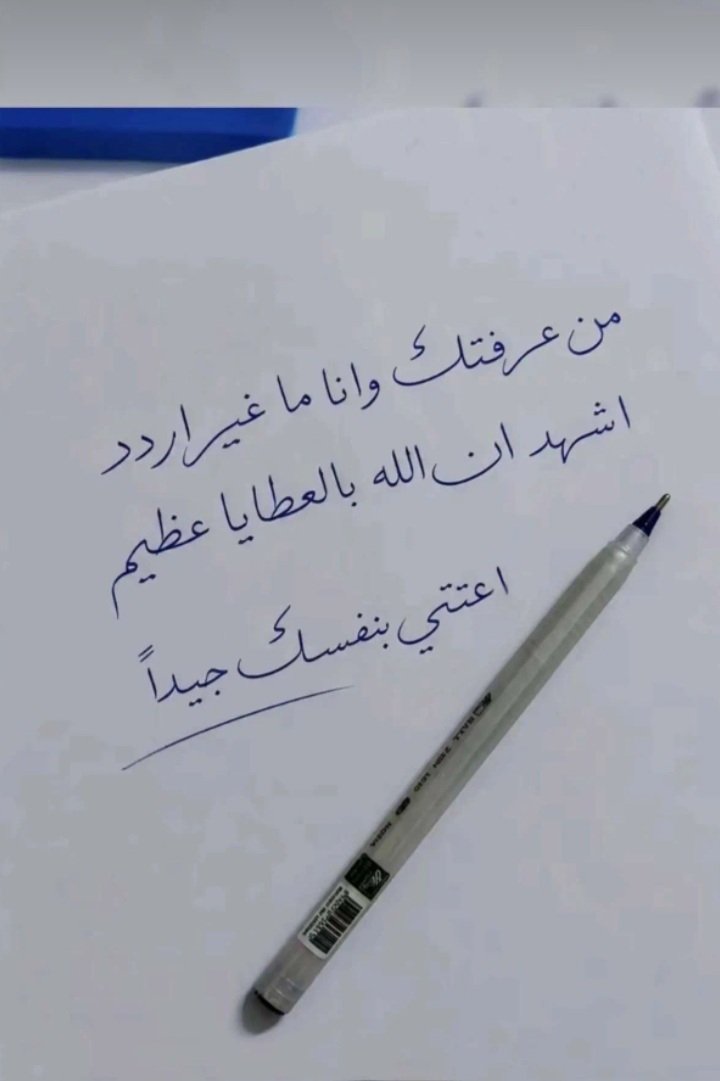 من عرفتك وانا ما غير اردد
اشهد ان الله بالعطايا عظيم
اعتني بنفسك جيداً